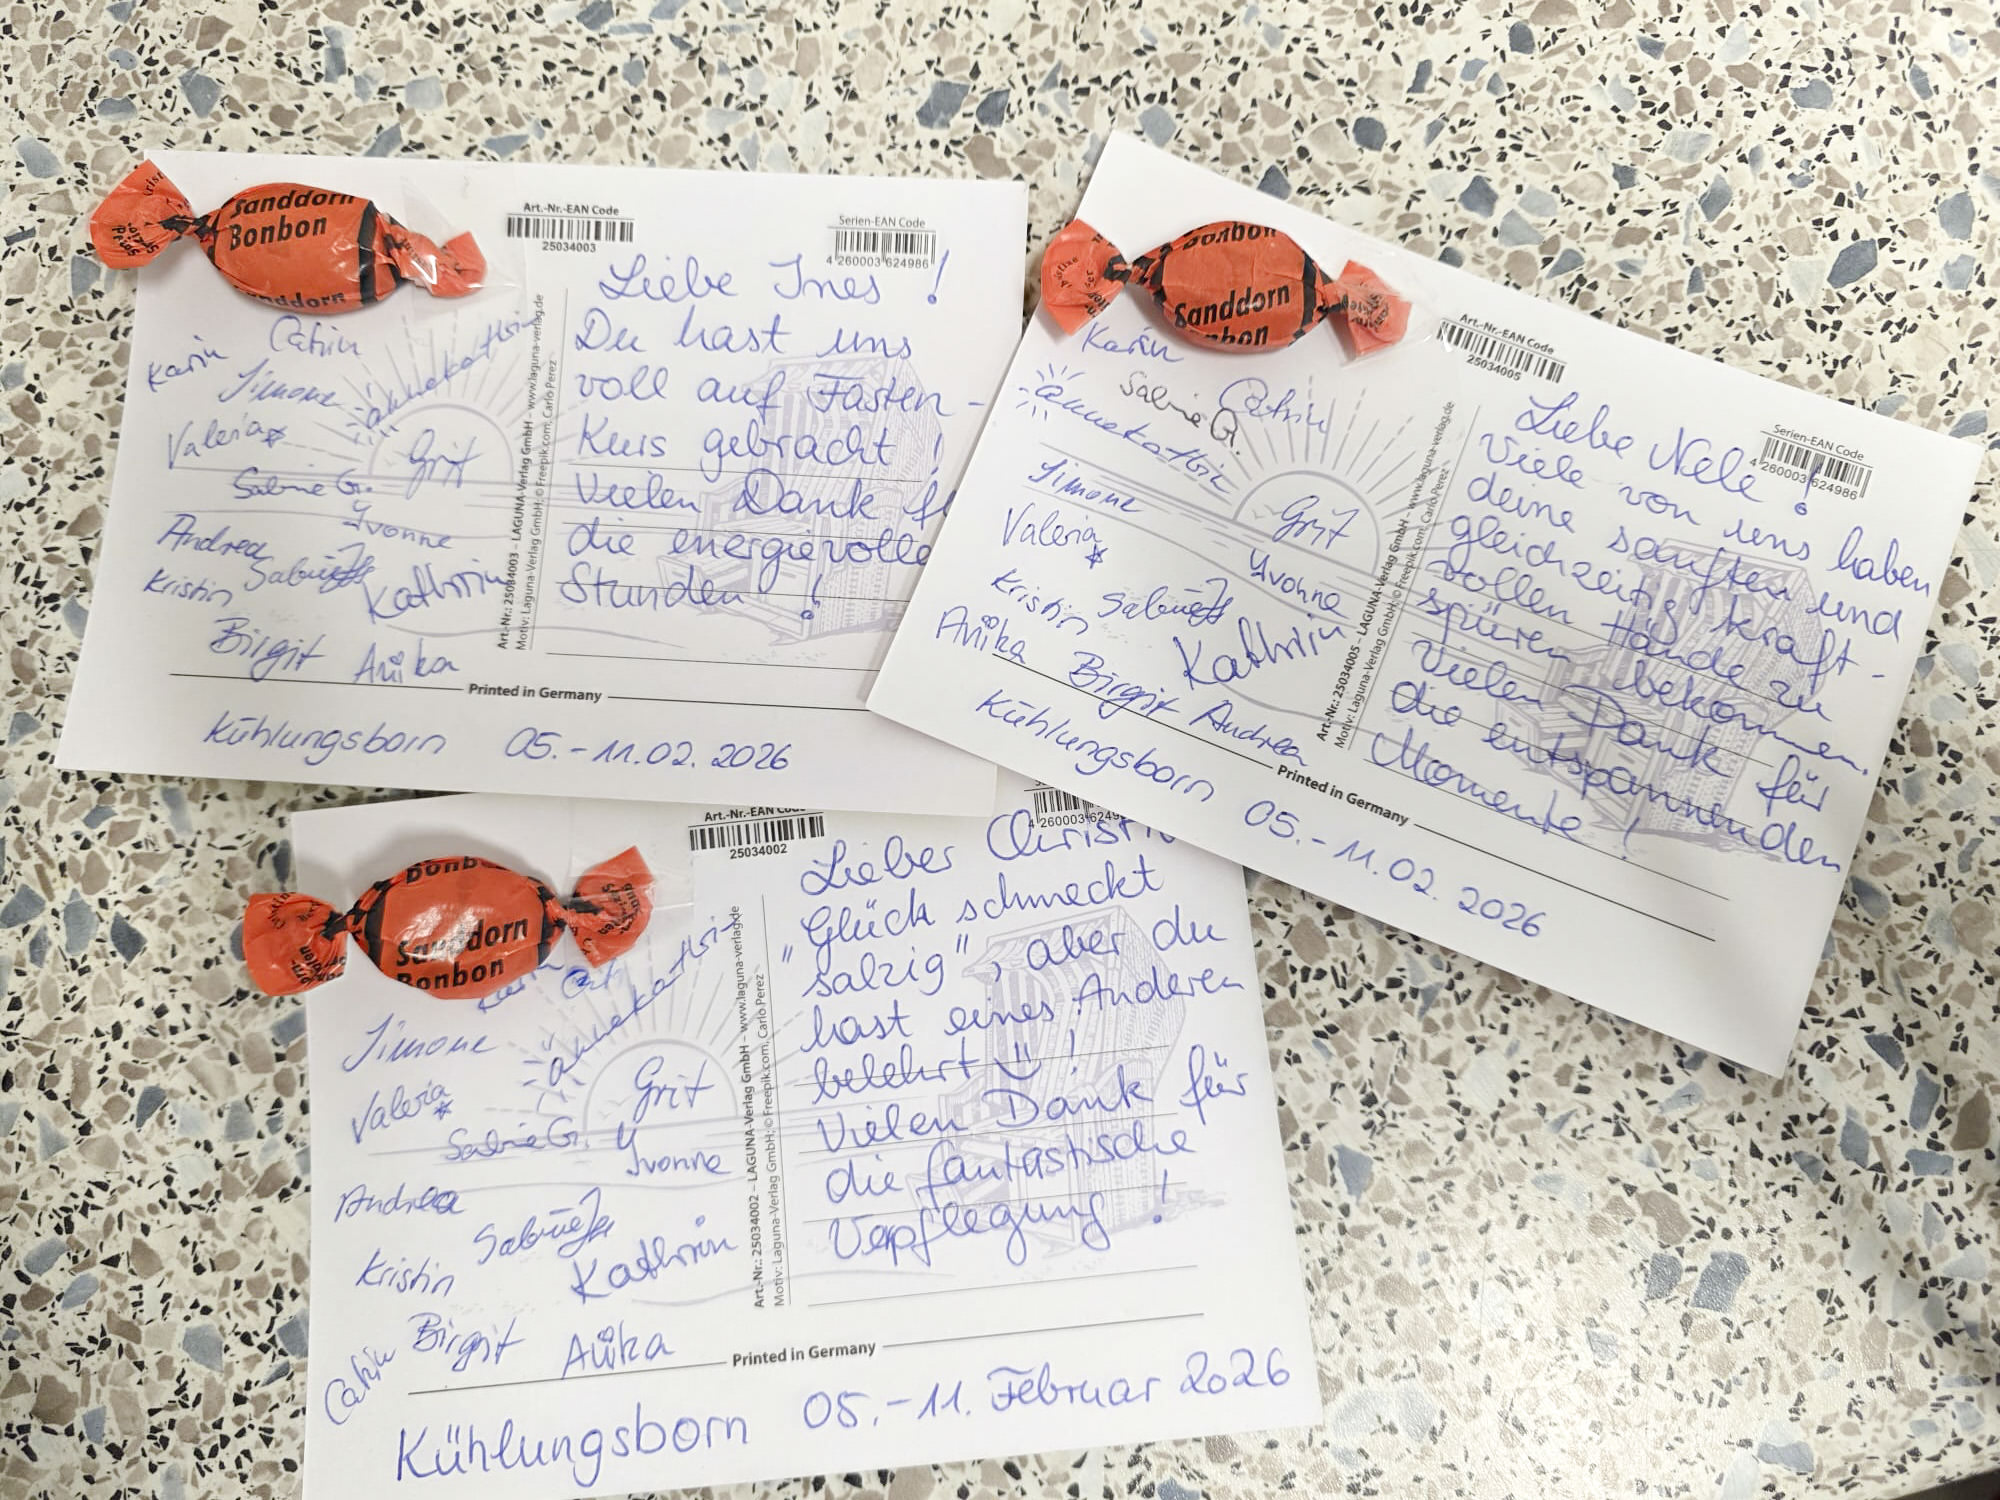 Sanddorn
Bonbon
Sanddorn
Art.-Nr.-EAN Code
25034003
Serien-EAN Code
4 260003 624986
Liebe Ines !
Du hast uns
voll auf Fasten-
Kurs gebracht !
Vielen Dank
die energievolle
Stunden !
Karin
Catrin
Simone
Annekathrin
Valeria
Grit
Sabine G.
Yvonne
Andrea
Sabine
Kristin
Kathrin
Birgit
Anika
Art.-Nr.: 25034003 – LAGUNA-Verlag GmbH – www.laguna-verlag.de
Motiv: Laguna-Verlag GmbH; © Freepik.com, Carlo Perez
Printed in Germany
Kühlungsborn 05.-11.02.2026
Bonbon
Sanddorn
Art.-Nr.-EAN Code
25034005
Serien-EAN Code
4 260003 624986
Liebe Nele !
Viele von uns haben
deine sanften und
gleichzeitig kraft-
vollen Hände zu
spüren bekommen.
Vielen Dank für
die entspannenden
Momente !
Karin
Sabine G.
Catrin
Annekathrin
Simone
Grit
Valeria
Yvonne
Kristin
Sabine
Anika
Kathrin
Birgit
Andrea
Art.-Nr.: 25034005 – LAGUNA-Verlag GmbH – www.laguna-verlag.de
Motiv: Laguna-Verlag GmbH; © Freepik.com, Carlo Perez
Printed in Germany
Kühlungsborn 05.-11.02.2026
Sanddorn
Bonbon
Art.-Nr.-EAN Code
25034002
Lieber
"Glück schmeckt
salzig", aber du
hast eines Anderen
belehrt !
Vielen Dank für
die fantastische
Verpflegung !
Simone
Annekathrin
Valeria
Grit
Sabine G.
Yvonne
Andrea
Sabine
Kristin
Kathrin
Birgit
Anika
Catrin
Art.-Nr.: 25034002 – LAGUNA-Verlag GmbH – www.laguna-verlag.de
Motiv: Laguna-Verlag GmbH; © Freepik.com, Carlo Perez
Printed in Germany
Kühlungsborn 05.-11. Februar 2026